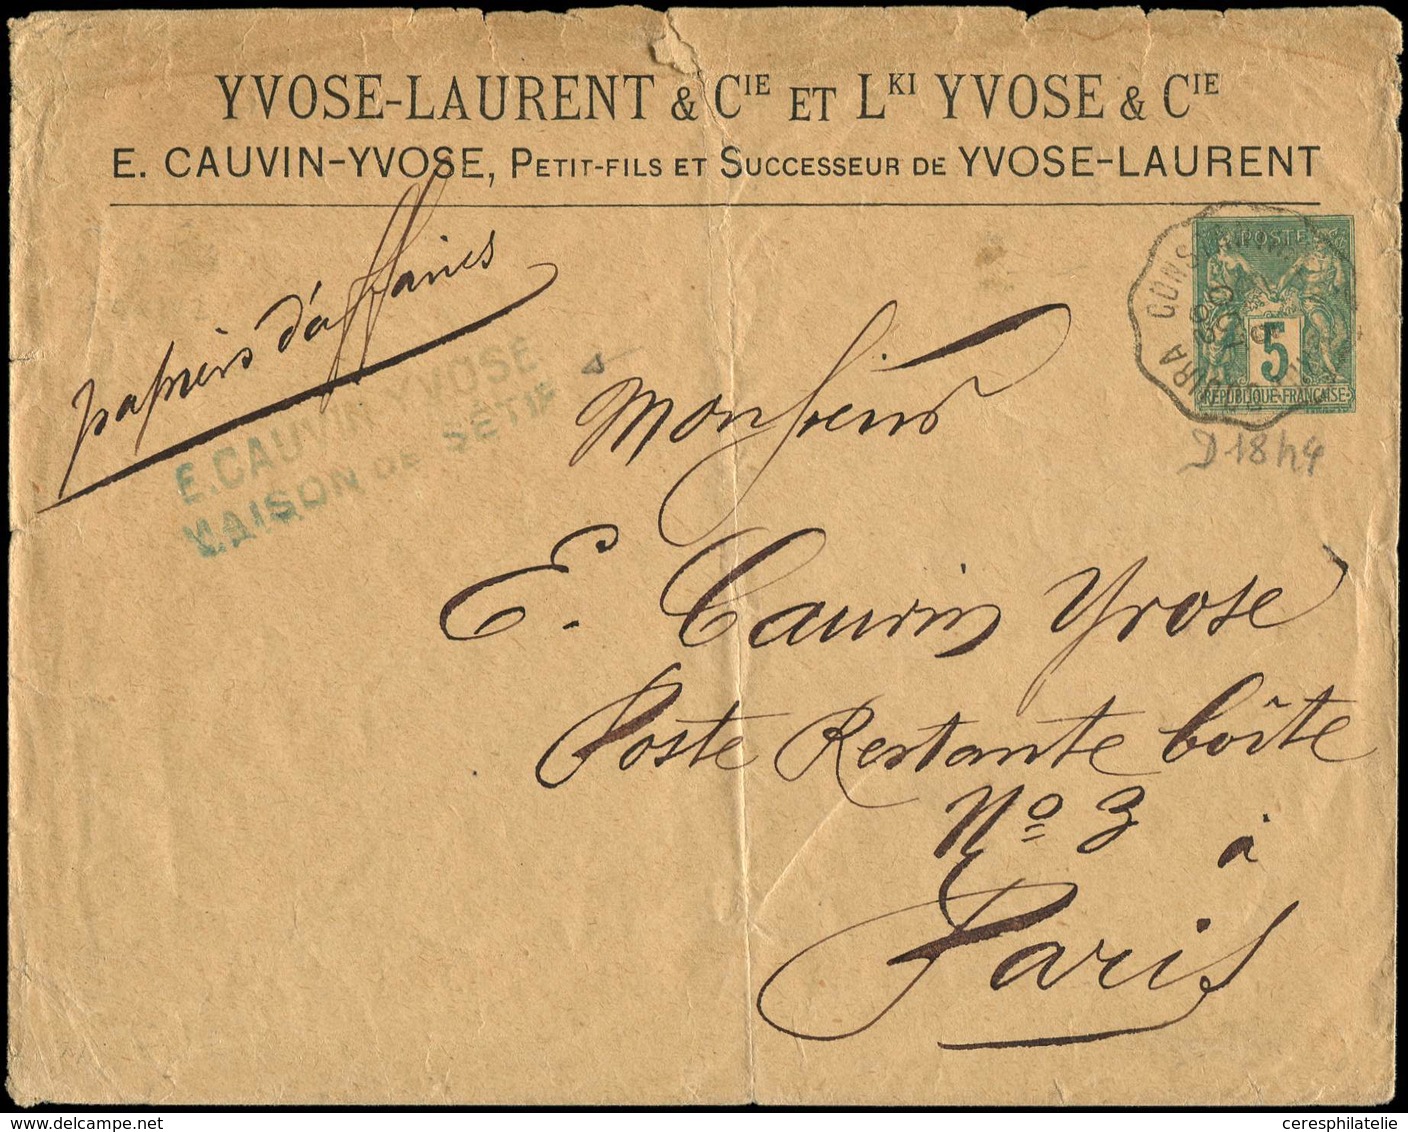 YVOSE-LAURENT & CIE ET LKI YVOSE & CIE
E. CAUVIN-YVOSE, PETIT-FILS ET SUCCESSEUR DE YVOSE-LAURENT
papiers d'affaires
E. CAUVIN YVOSE
MAISON DE SÉTIF
POSTE
5
REPUBLIQUE FRANÇAISE
D 1844
Monsieur
E. Cauvin Yvose
Poste Restante boîte
No 3 à
Paris
ceresphilatelie